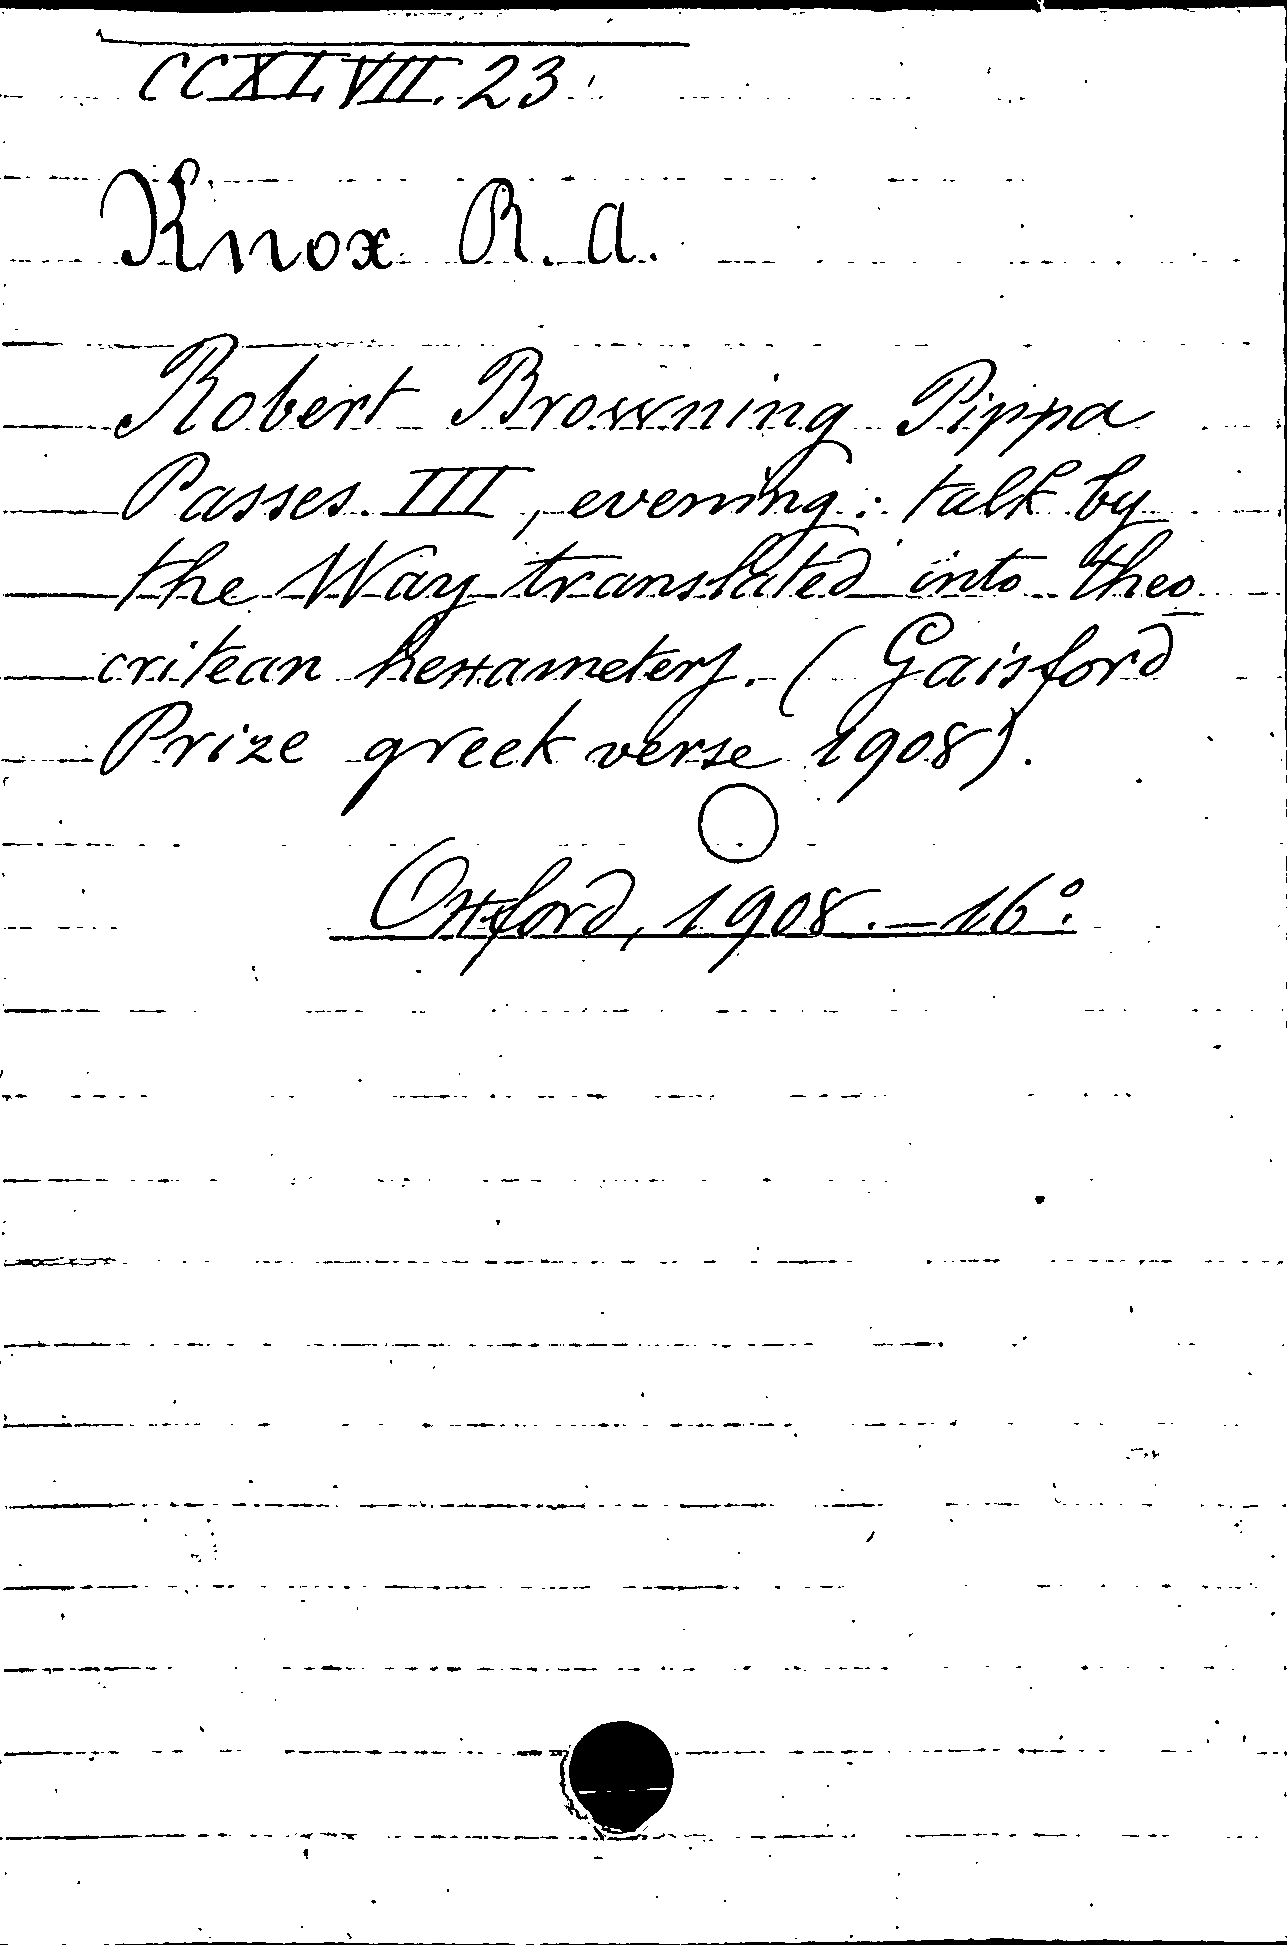 CCXLVII. 23.
Knox R. A.
Robert Browning Pippa
Passes. III, evening: talk by
the Way translated into theo
critean hexameters. (Gaisford
Prize greek verse 1908).
Oxford, 1908. – 16°.